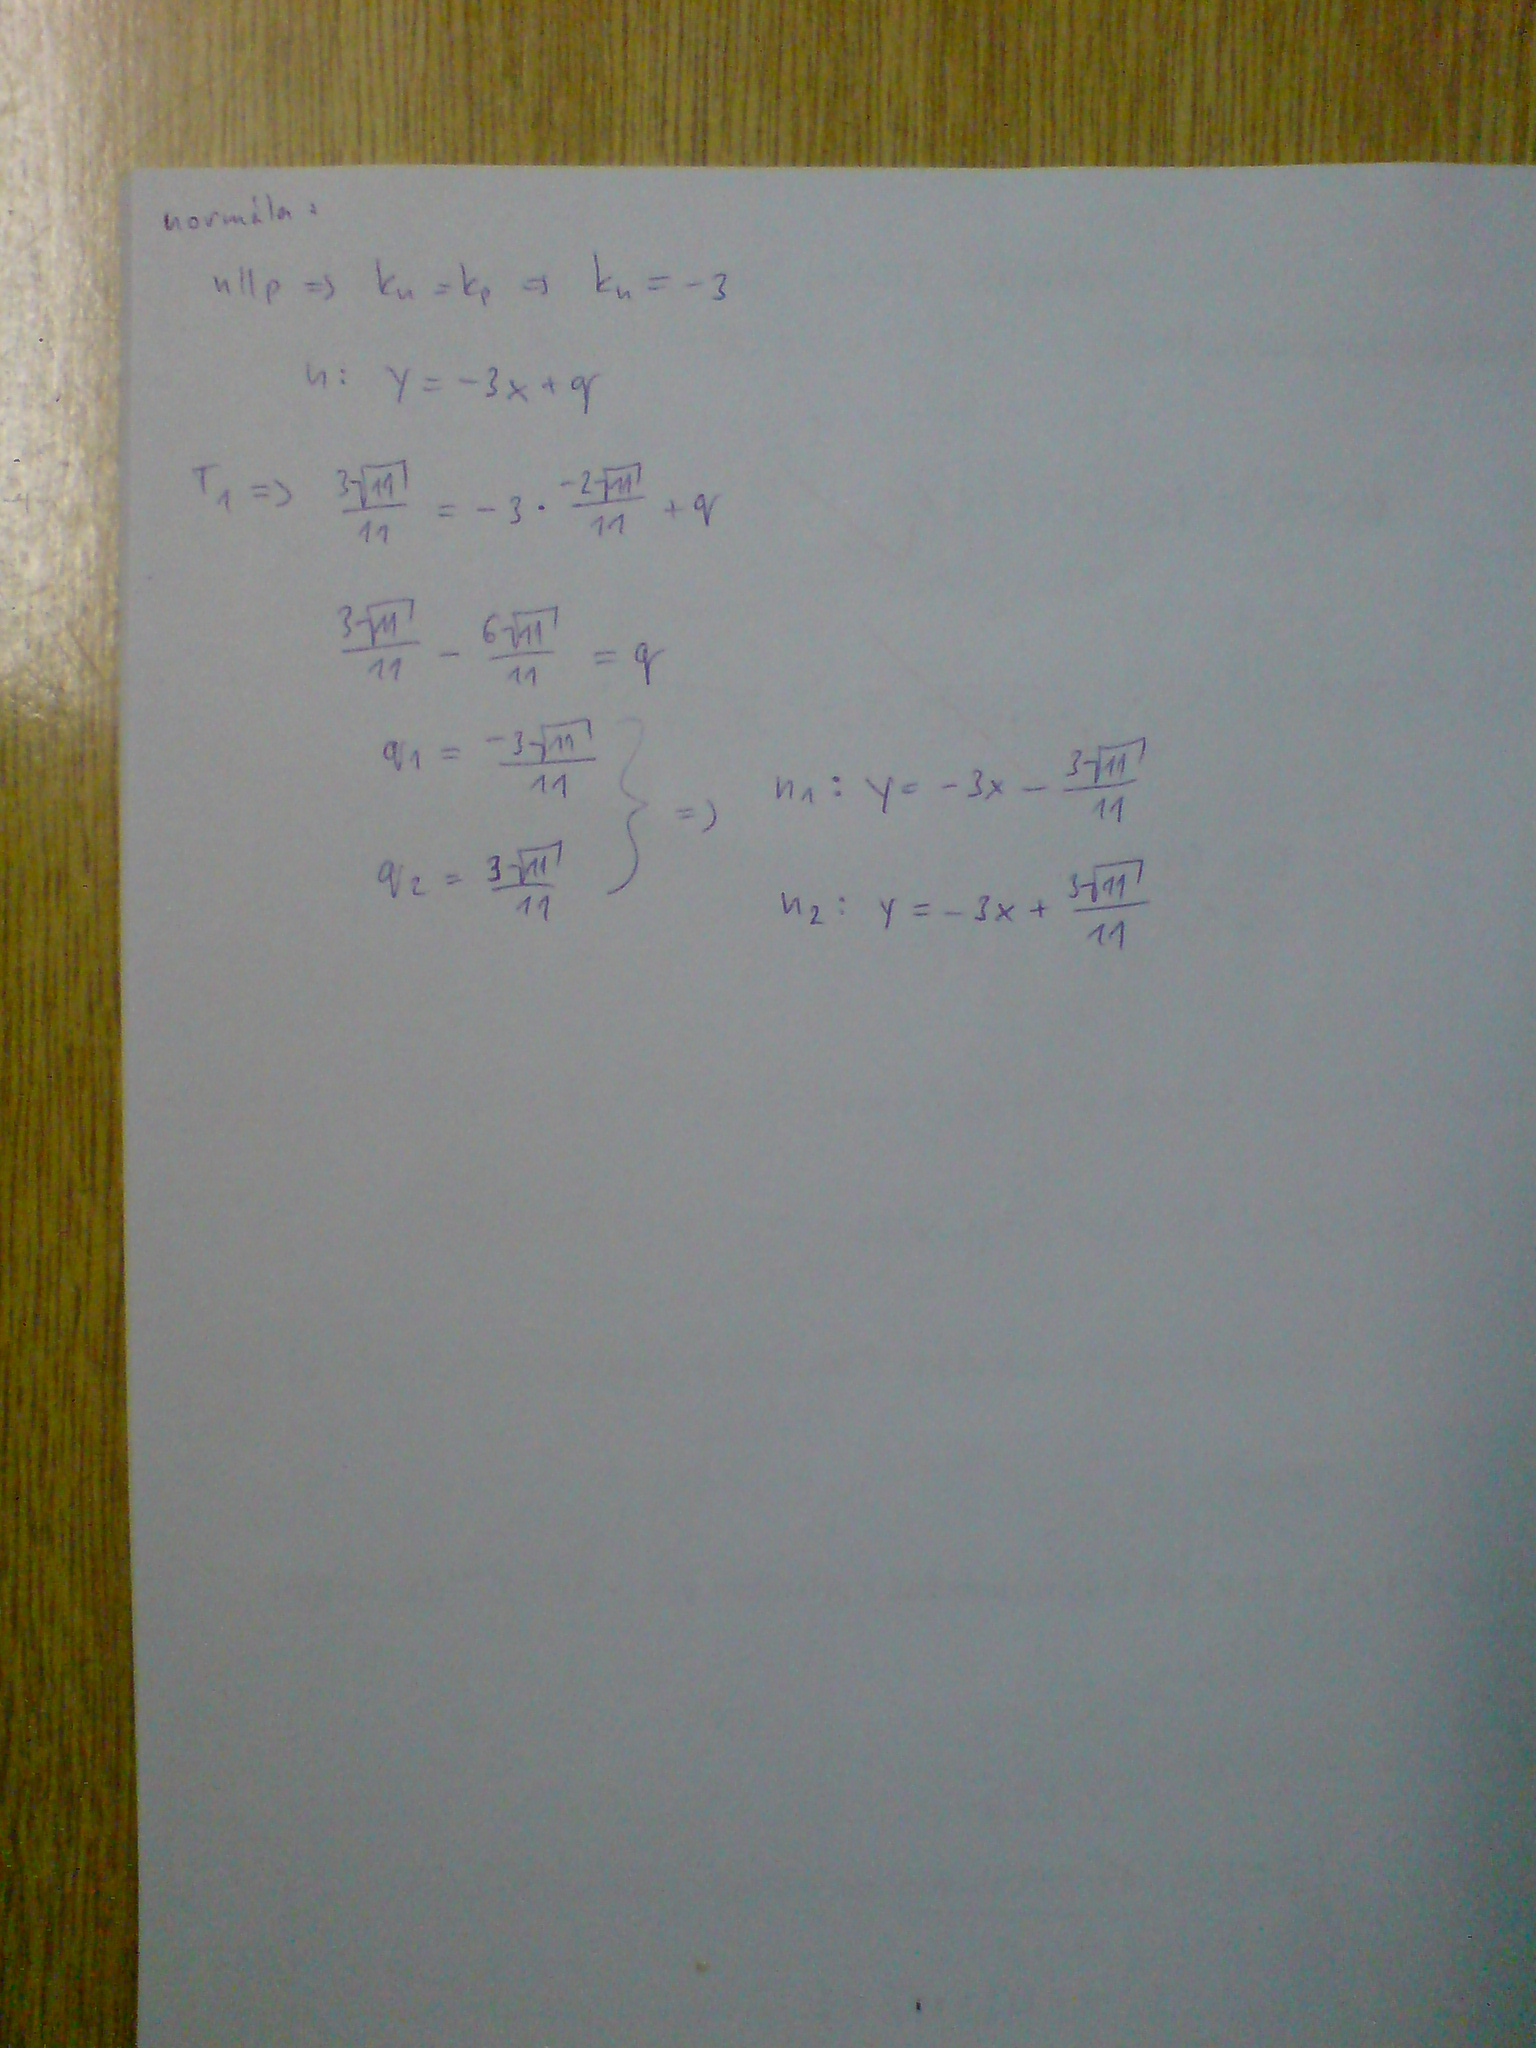 normála:
n||p => kn = kp => kn = -3
n: y = -3x + q
T1 => 3√11/11 = -3 · -2√11/11 + q
3√11/11 - 6√11/11 = q
q1 = -3√11/11
q2 = 3√11/11 } =>
n1: y = -3x - 3√11/11
n2: y = -3x + 3√11/11